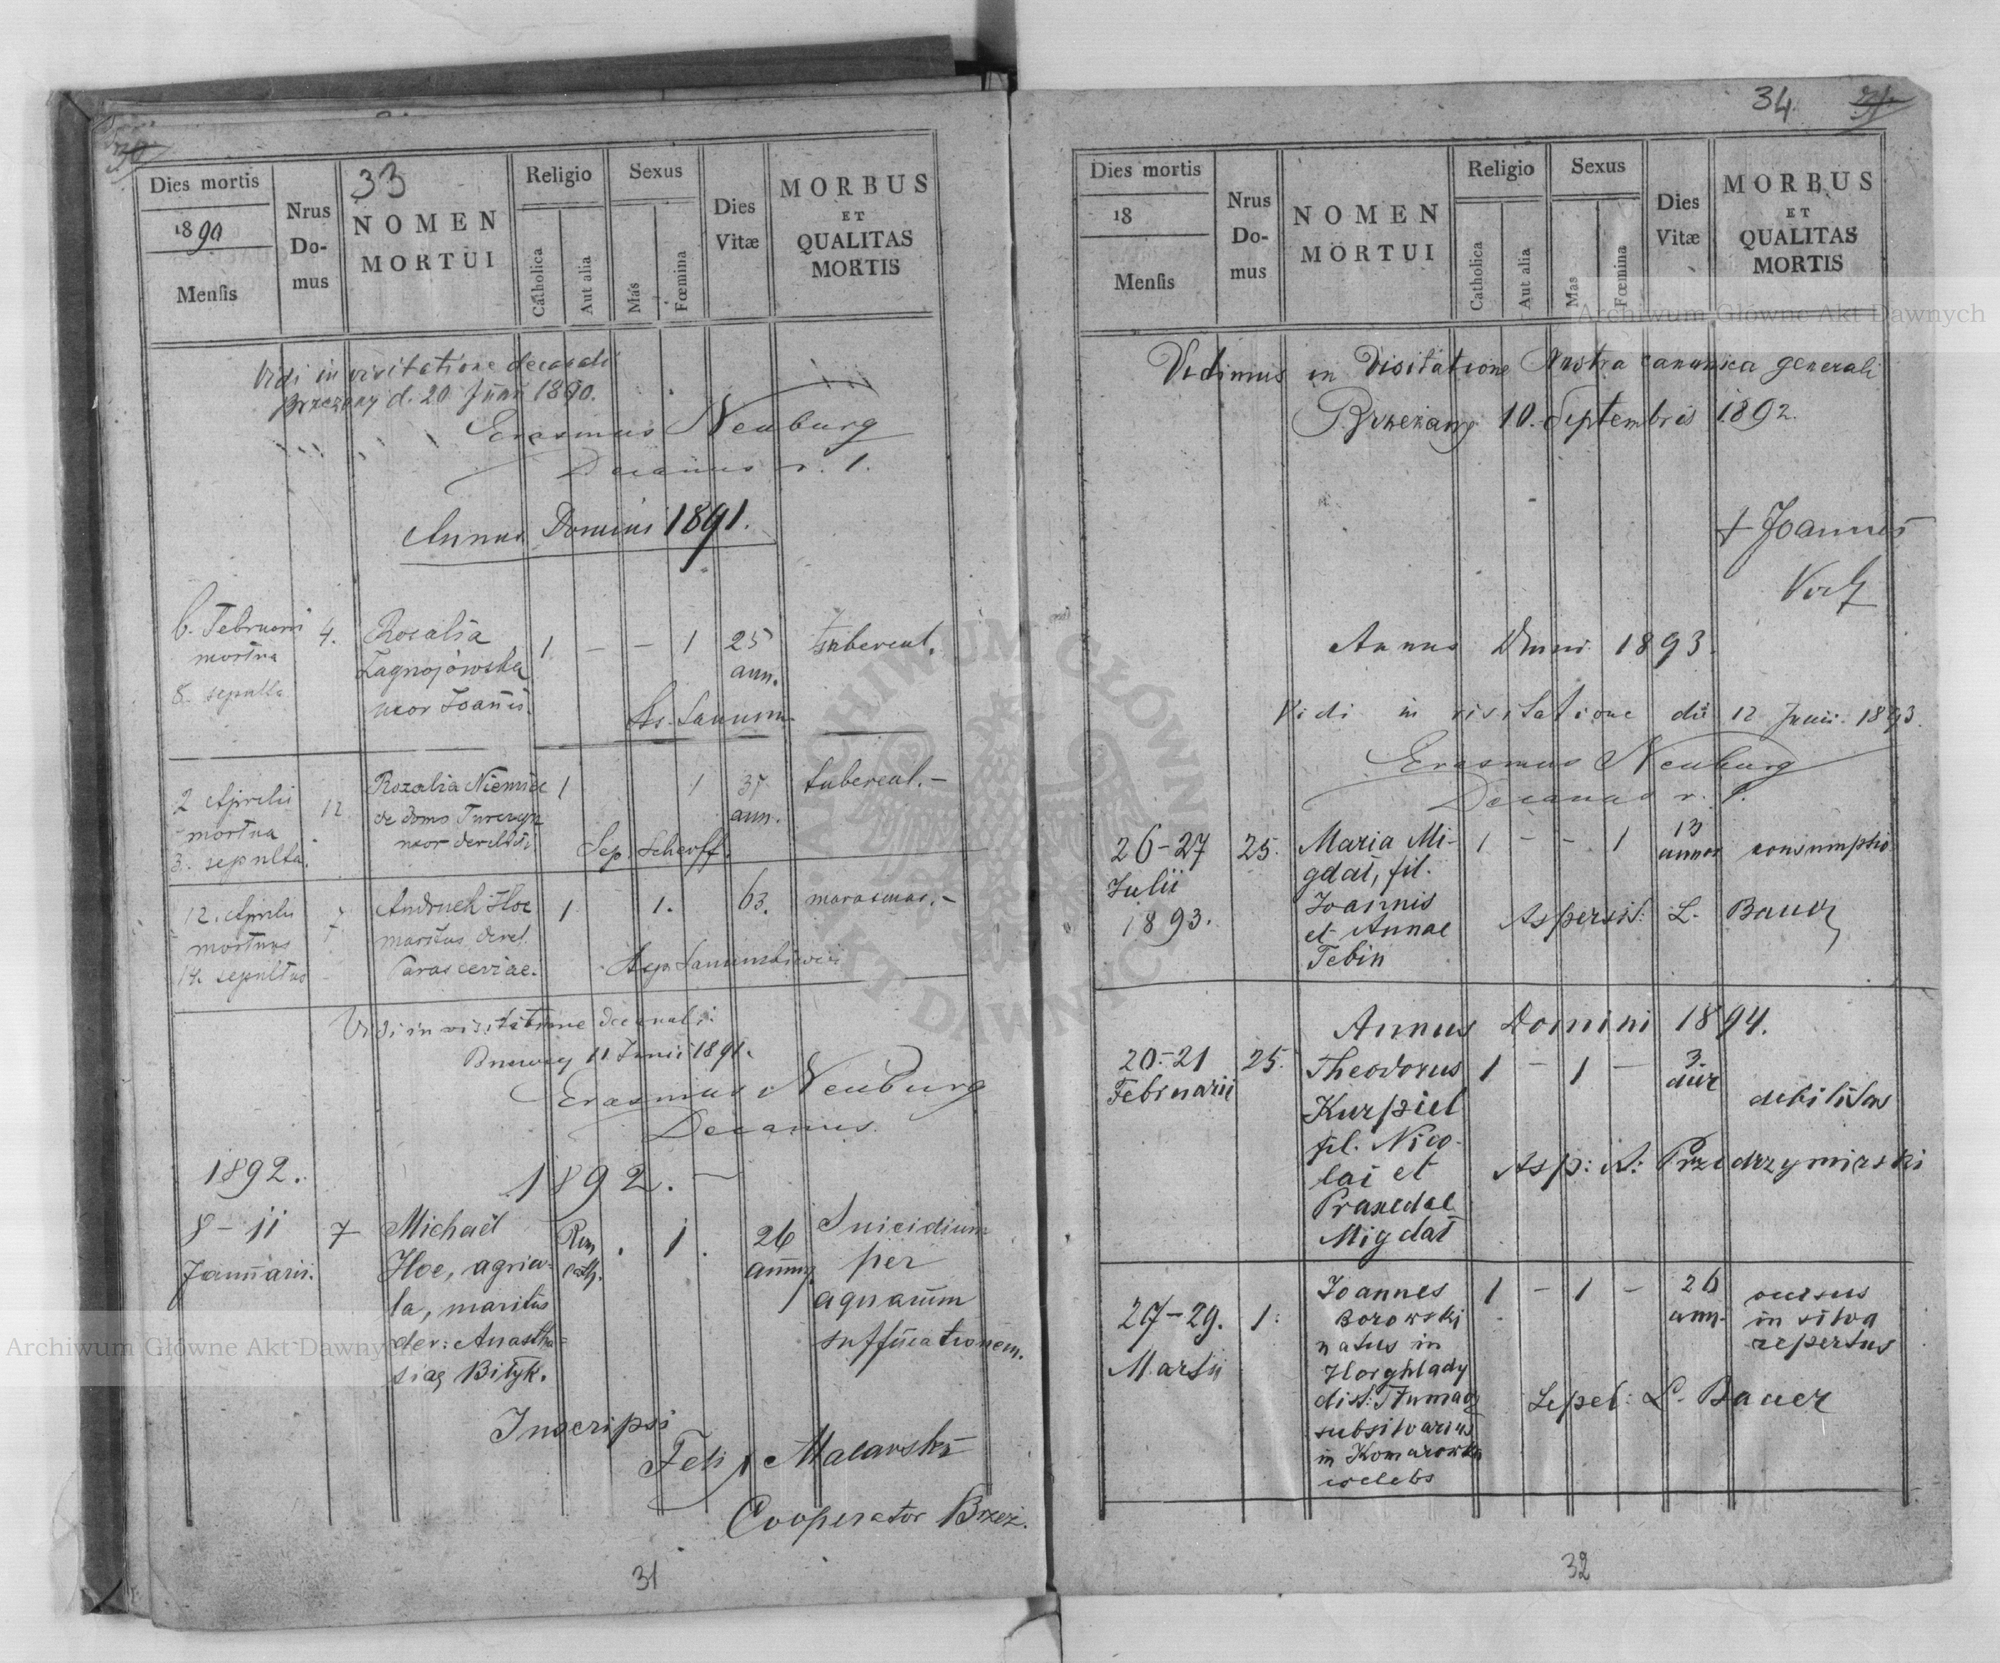 33
Dies mortis
1890
Mensis
Nrus Do-mus
NOMEN MORTUI
Religio
Catholica
Aut alia
Sexus
Mas
Fœmina
Dies Vitæ
MORBUS
ET
QUALITAS
MORTIS
Vidi in visitatione decanali
Brzezany d. 20 Junii 1890.
Erasmus Neuburg
Decanus r. l.
Annus Domini 1891.
6. Februarii mortua 8. sepulta
4.
Rosalia
Zagnojówska
uxor Joannis.
1 – – 1
25 ann.
tubercul.
2 Aprilis
mortua
3. sepulta.
12
Rozalia Niemiec
de domo Turczyn
uxor derelicti
1 1
37 ann.
tubercul. –
Sep. Scherff.
12. Aprilis
mortuus
14. sepultus
7
Andruch Hoc
maritus derel.
Parasceviae.
1 1.
63.
marasmus. –
Vidi in visitatione decanali
11 Junii 1891.
Erasmus Neuburg
Decanus.
1892.
1892. –
8 – 11
Januarii.
7
Michael
Hoc, agrico-
la, maritus
der: Anastha-
siae Bilyk.
Rom. cath.
. 1 .
26
annorum
Suicidium
per
aquarum
suffucationem.
Inscripsi
Felix Malawski
Cooperator Brzez.
31
34
Dies mortis
18
Mensis
Nrus Do-mus
NOMEN MORTUI
Religio
Catholica
Aut alia
Sexus
Mas
Fœmina
Dies Vitæ
MORBUS
ET
QUALITAS
MORTIS
Vidimus in Visitatione Nostra canonica generali
Brzezany 10. Septembris 1892.
† Joannes
Annus Dmni 1893.
Vidi in visitatione die 12 Junii 1893.
Erasmus Neuburg
Decanus r. l.
26-27
Julii
1893.
25.
Maria Mi-
gdał, fil.
Joannis
et Annae
Tebin
1 – – 1
13
annor
consumptio
Aspersit: L. Bauer
Annus Domini 1894.
20-21
Februarii
25.
Theodorus
Kurpiel
fil. Nico-
lai et
Praxedae
Migdał
1 – 1 –
3
dier
debilitas
Asp: A: Przedrzymirski
27-29.
Martii
1.
Joannes
Borowski
natus in
Horyhlady
dist: Tłumacz
subsilvarius
in Komarówka
coelebs
1 – 1 –
26
ann.
occisus
in silva
repertus
Sepel: L. Bauer
32
Archiwum Główne Akt Dawnych
Archiwum Główne Akt Dawnych
ARCHIWUM GŁÓWNE AKT DAWNYCH